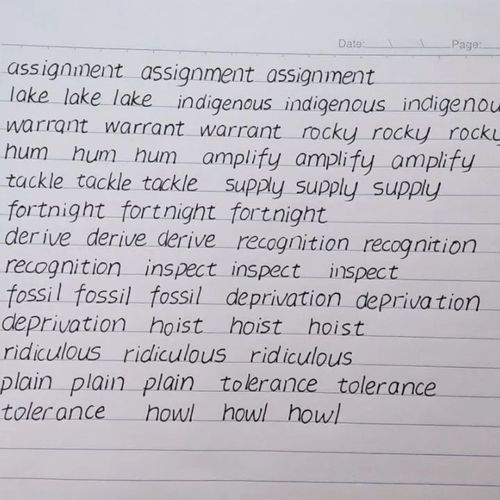 Date: \ \ Page:
assignment assignment assignment
lake lake lake indigenous indigenous indigenou
warrant warrant warrant rocky rocky rocky
hum hum hum amplify amplify amplify
tackle tackle tackle supply supply supply
fortnight fortnight fortnight
derive derive derive recognition recognition
recognition inspect inspect inspect
fossil fossil fossil deprivation deprivation
deprivation hoist hoist hoist
ridiculous ridiculous ridiculous
plain plain plain tolerance tolerance
tolerance howl howl howl